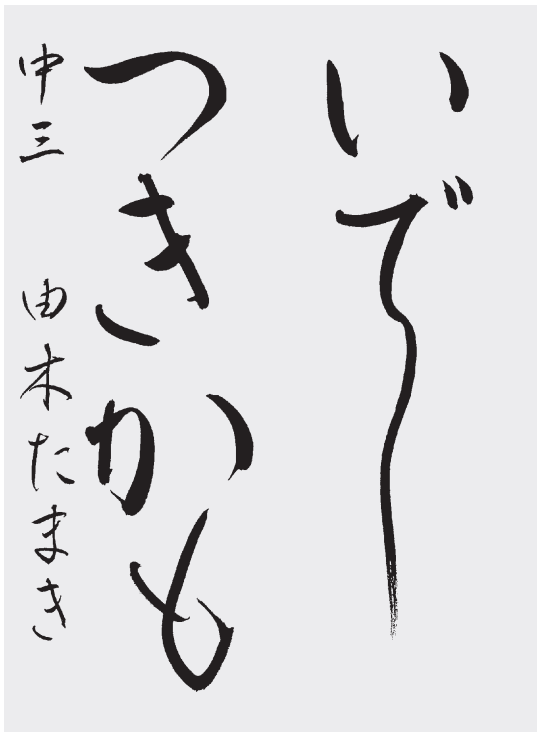 いでし
つきかも
中三 由木たまき